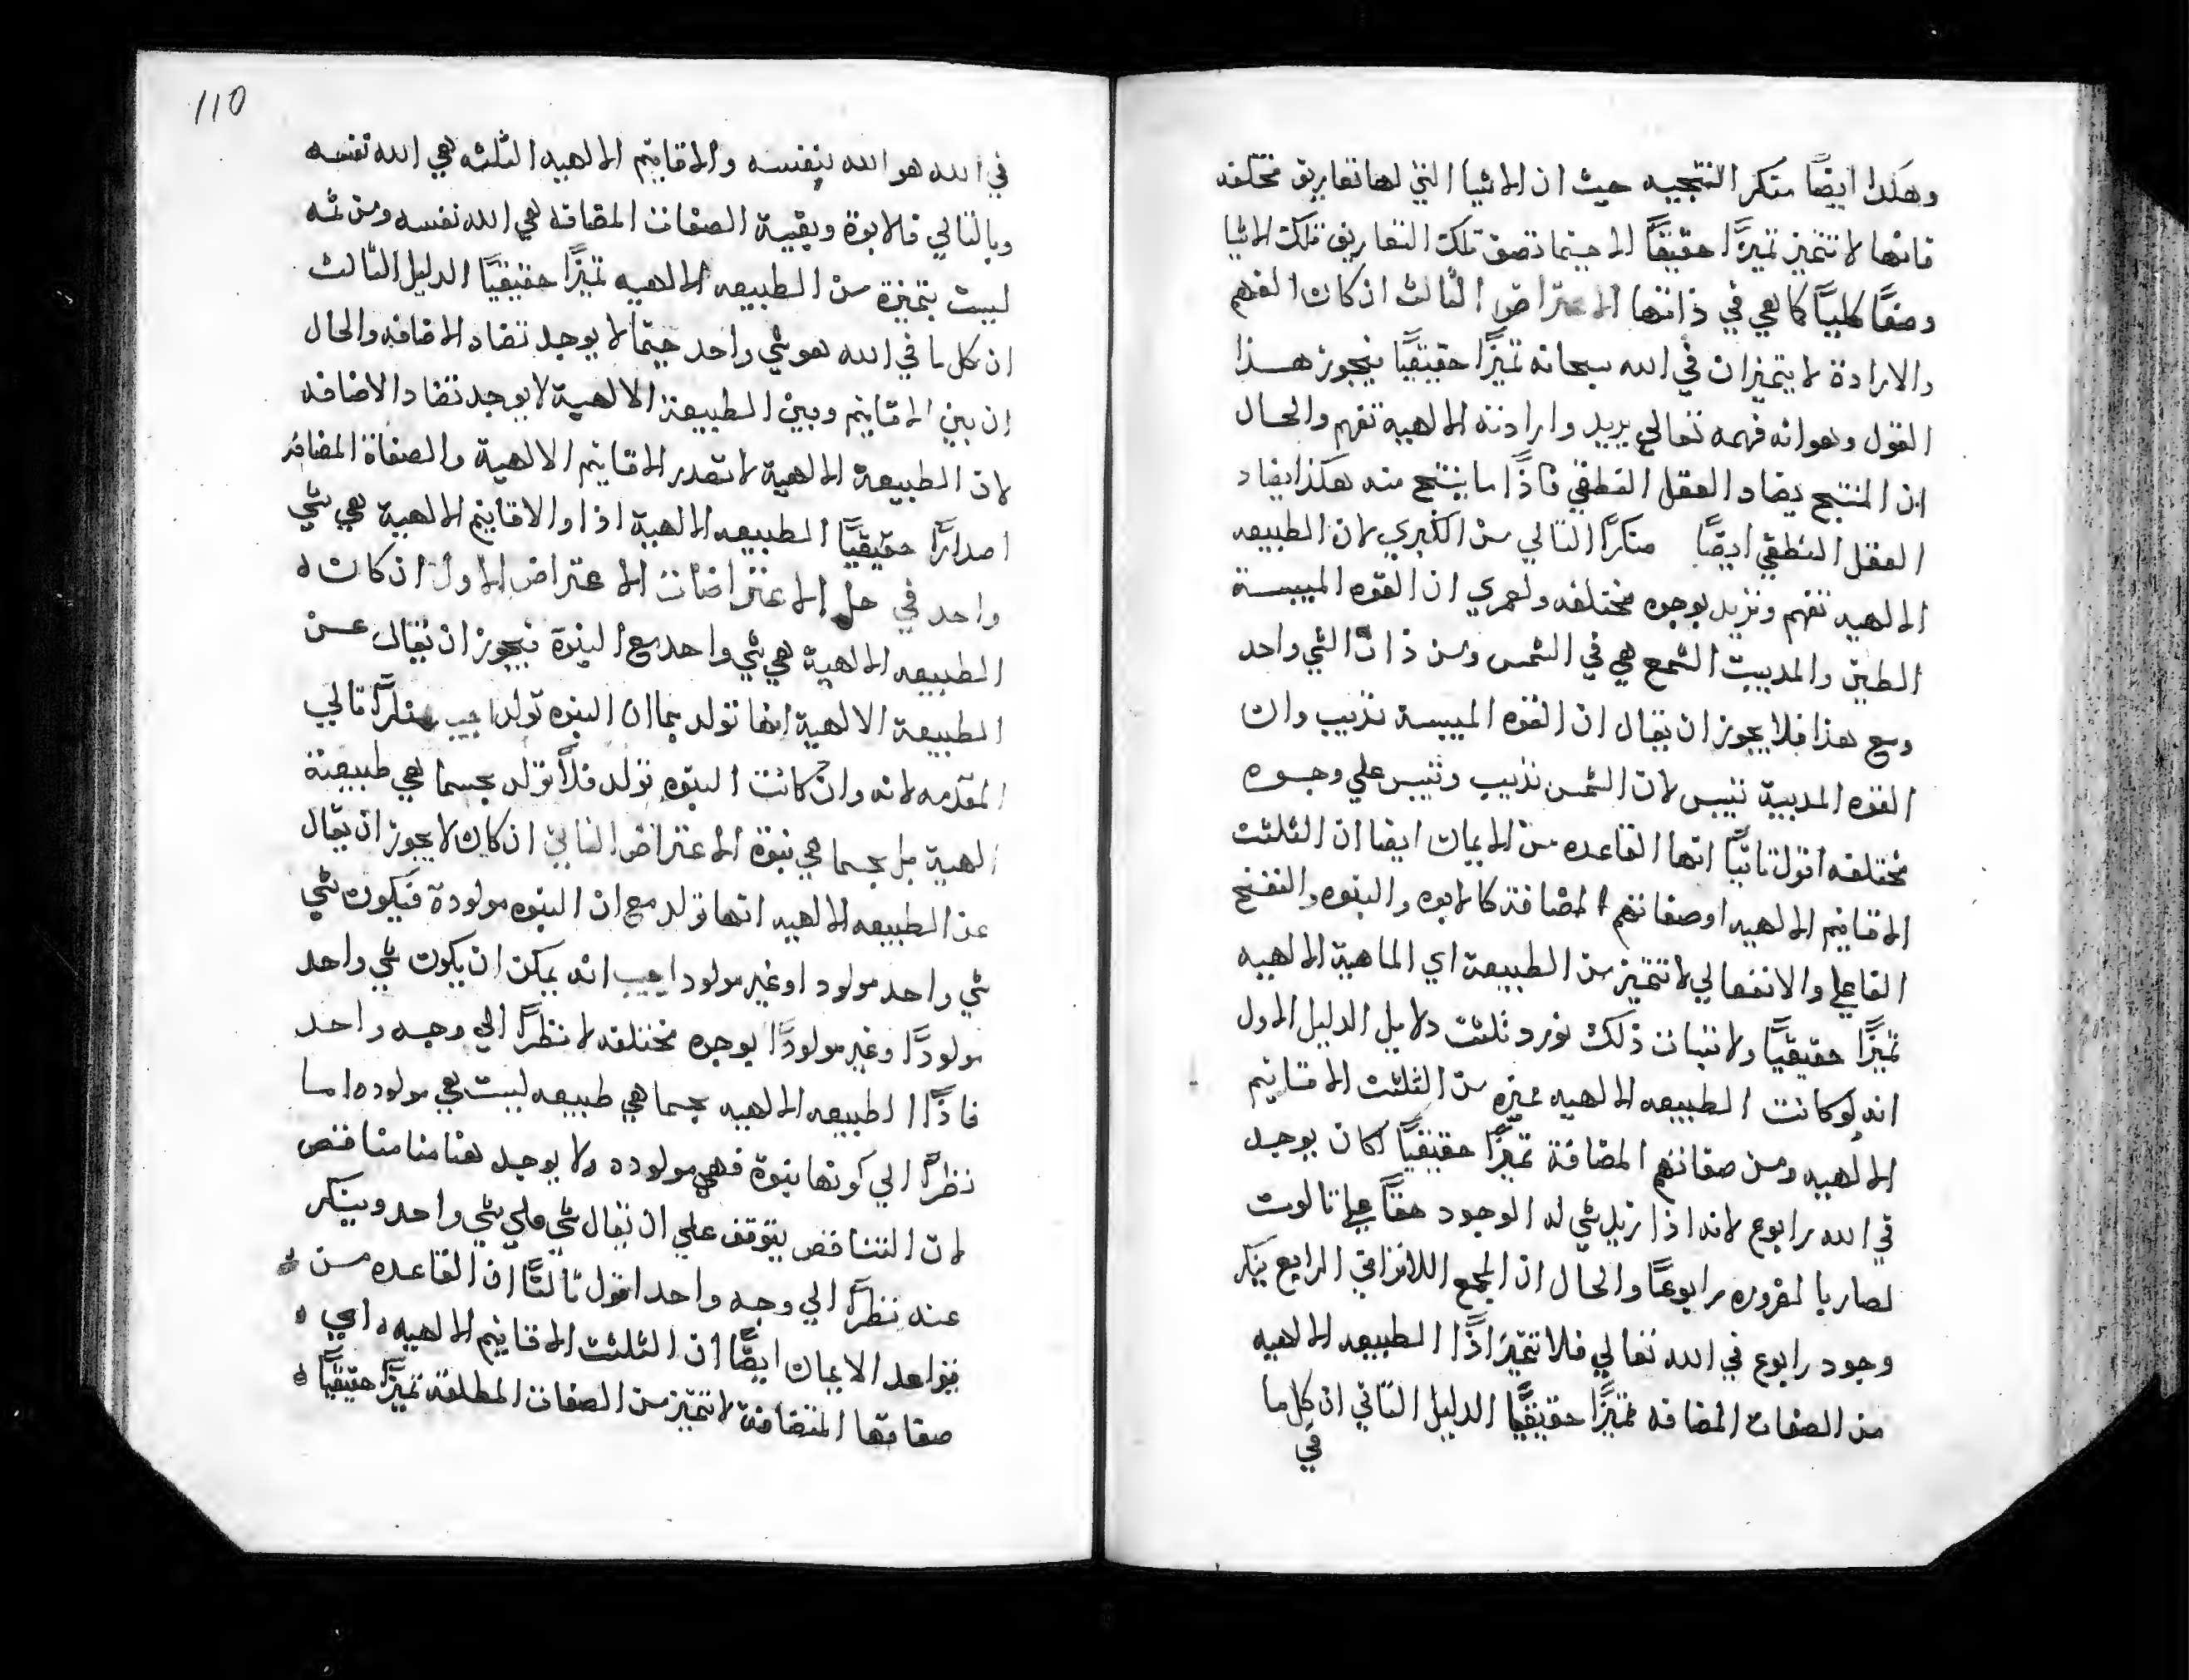 وهكذا ايضًا منكر النتجيه حيث ان الاشيا التي لها تعاريف مختلفه
فانها لا تتميز تميزًا حقيقيًا الا حيثما تصف تلك التعاريف تلك الاشيا
وصفًا كليًا كما هي في ذاتها الاعتراض الثالث ان كان الفهم
والارادة لا يتميزان في الله سبحانه تميزًا حقيقيًا فيجوز هذا
القول وهو انه فهمه تعالي يريد وارادته الالهية تفهم والحال
ان المنتج يضاد العقل النطقي فاذًا ما ينتج منه هكذا يضاد
العقل النطقي ايضًا منكرًا التالي من الكبري لان الطبيعه
الالهيه تفهم وتريد بوجوه مختلفه ولعمري ان القوه الميبسة
الطين والمديبت الشمع هي في الشمس ومن ذات الشي واحد
ومع هذا فلا يجوز ان يقال ان القوه الميبسة تذيب وان
القوه المديبة تيبس لان الشمس تذيب وتيبس علي وجوه
مختلفه اقول ثانيًا انها القاعده من الايمان ايضا ان الثلثت
الاقانيم الالهيه او صفاتهم المضافة كالابوه والبنوه والنفخ
الفاعلي والانفعالي لا تتميز من الطبيعة اي الماهية الالهيه
تميزًا حقيقيًا ولاتبات ذلك نورد ثلثت دلايل الدليل الاول
انه لو كانت الطبيعه الالهيه مميزه من الثلثت الاقانيم
الالهيه ومن صفاتهم المضافة تميزًا حقيقيًا لكان يوجد
في الله رابوع لانه اذا زيد شي له الوجود حقًا علي تالوت
لصار بالضروره رابوعًا والحال ان المجمع اللاتراني الرابع ينكر
وجود رابوع في الله تعالي فلا تتميز اذًا الطبيعه الالهيه
من الصفات المضافه تميزًا حقيقيًا الدليل التاني ان كل ما
في
110
في الله هو الله بنفسه والاقانيم الالهيه الثلثه هي الله نفسه
وبالتالي فالابوة وبقية الصفات المضافه هي الله نفسه ومن ثمه
ليست بتميزة من الطبيعه الالهيه تميزًا حقيقيًا الدليل التالت
ان كل ما في الله هو شي واحد حيثما لا يوجد تضاد الاضافه والحال
ان بين الاقانيم وبين الطبيعة الالهية لا يوجد تضاد الاضافه
لان الطبيعة الالهية لا تصدر الاقانيم الالهية والصفاة المضافه
اصدارًا حقيقيًا الطبيعه الالهية اذا والاقانيم الالهية هي شي
واحد في حل الاعتراضات الاعتراض الاول ان كان ه
الطبيعه الالهية هي شي واحد مع البنوة فيجوز ان يقال عن
الطبيعة الالهية انها تولد بما ان البنوه تولد اجيب منكرًا تالي
المقدمه لانه وان كانت البنوه تولد فلا تولد بحسبما هي طبيعة
الهية بل بحسبما هي بنوة الاعتراض التاني ان كان لا يجوز ان يقال
عن الطبيعه الالهيه انها تولد مع ان البنوه مولودة فيكون شي
شي واحد مولود او غير مولود اجيب انه يمكن ان يكون شي واحد
مولودًا وغير مولودًا بوجوه مختلفه لا نظرًا الي وجه واحد
فاذًا الطبيعه الالهيه بحسبما هي طبيعه ليست هي مولوده اما
نظرًا الي كونها بنوة فهي مولوده ولا يوجد هنا منا مناقض
لان التناقض يتوقف علي ان يقال شي علي شي واحد وينكر
عنه نظرًا الي وجه واحد اقول ثالثًا ان القاعده من
قواعد الايمان ايضًا ان الثلثت الاقانيم الالهيه اي
صفاتها المتضافة لا تتميز من الصفات المطلقة تميزًا حقيقيًا